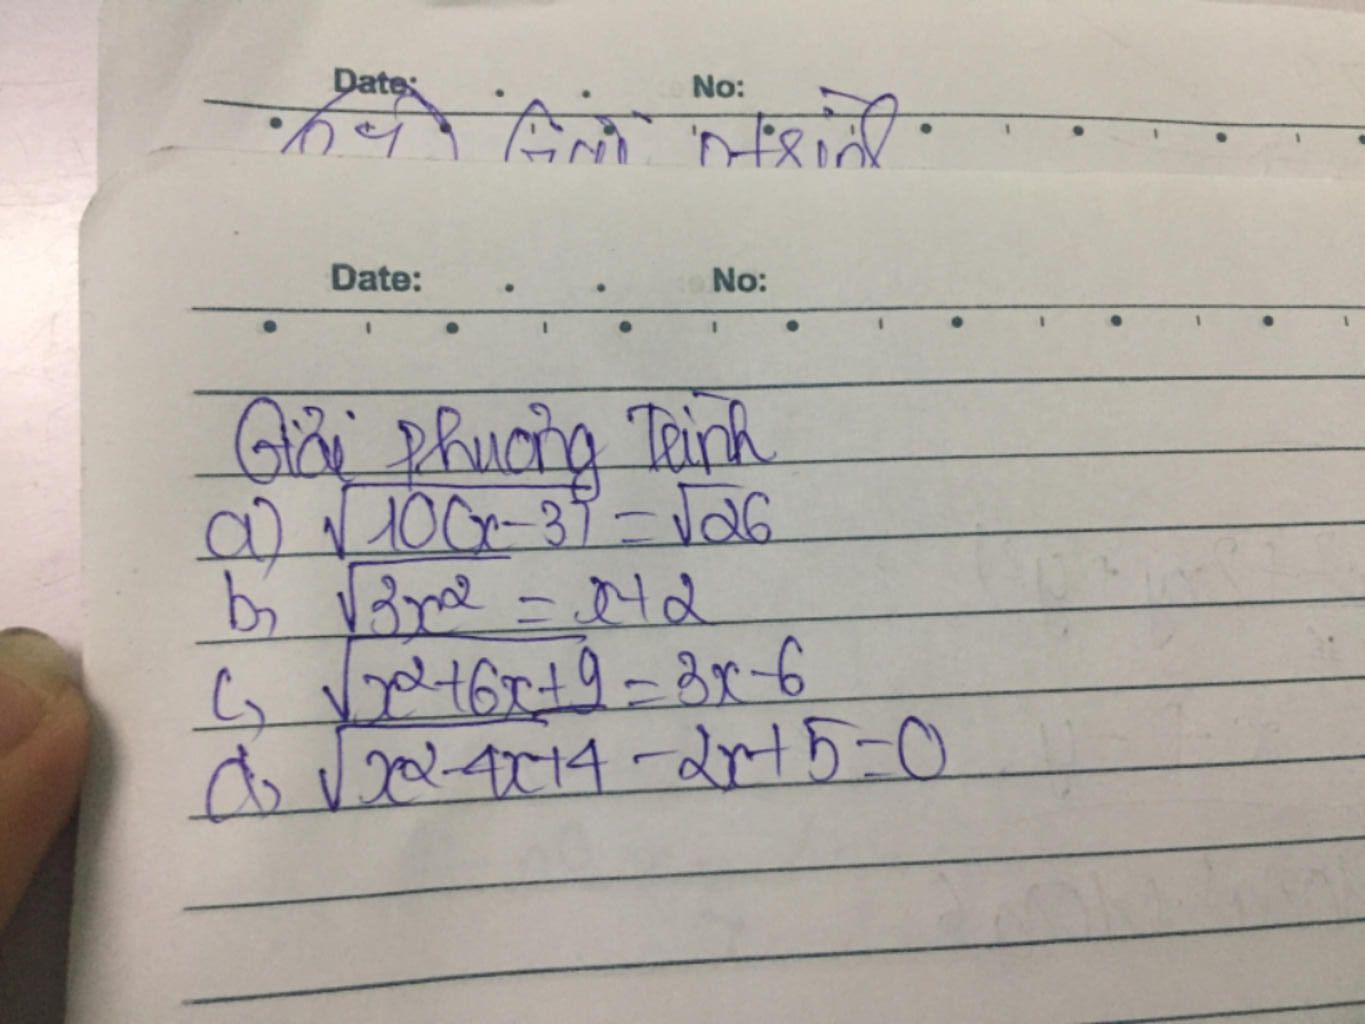 Date: . . No:
Date: . . No:
Giải phương Trình
a) √10(x-3) = √26
b, √3x² = x+2
c, √x²+6x+9 = 3x-6
d, √x²-4x+4 -2x+5=0